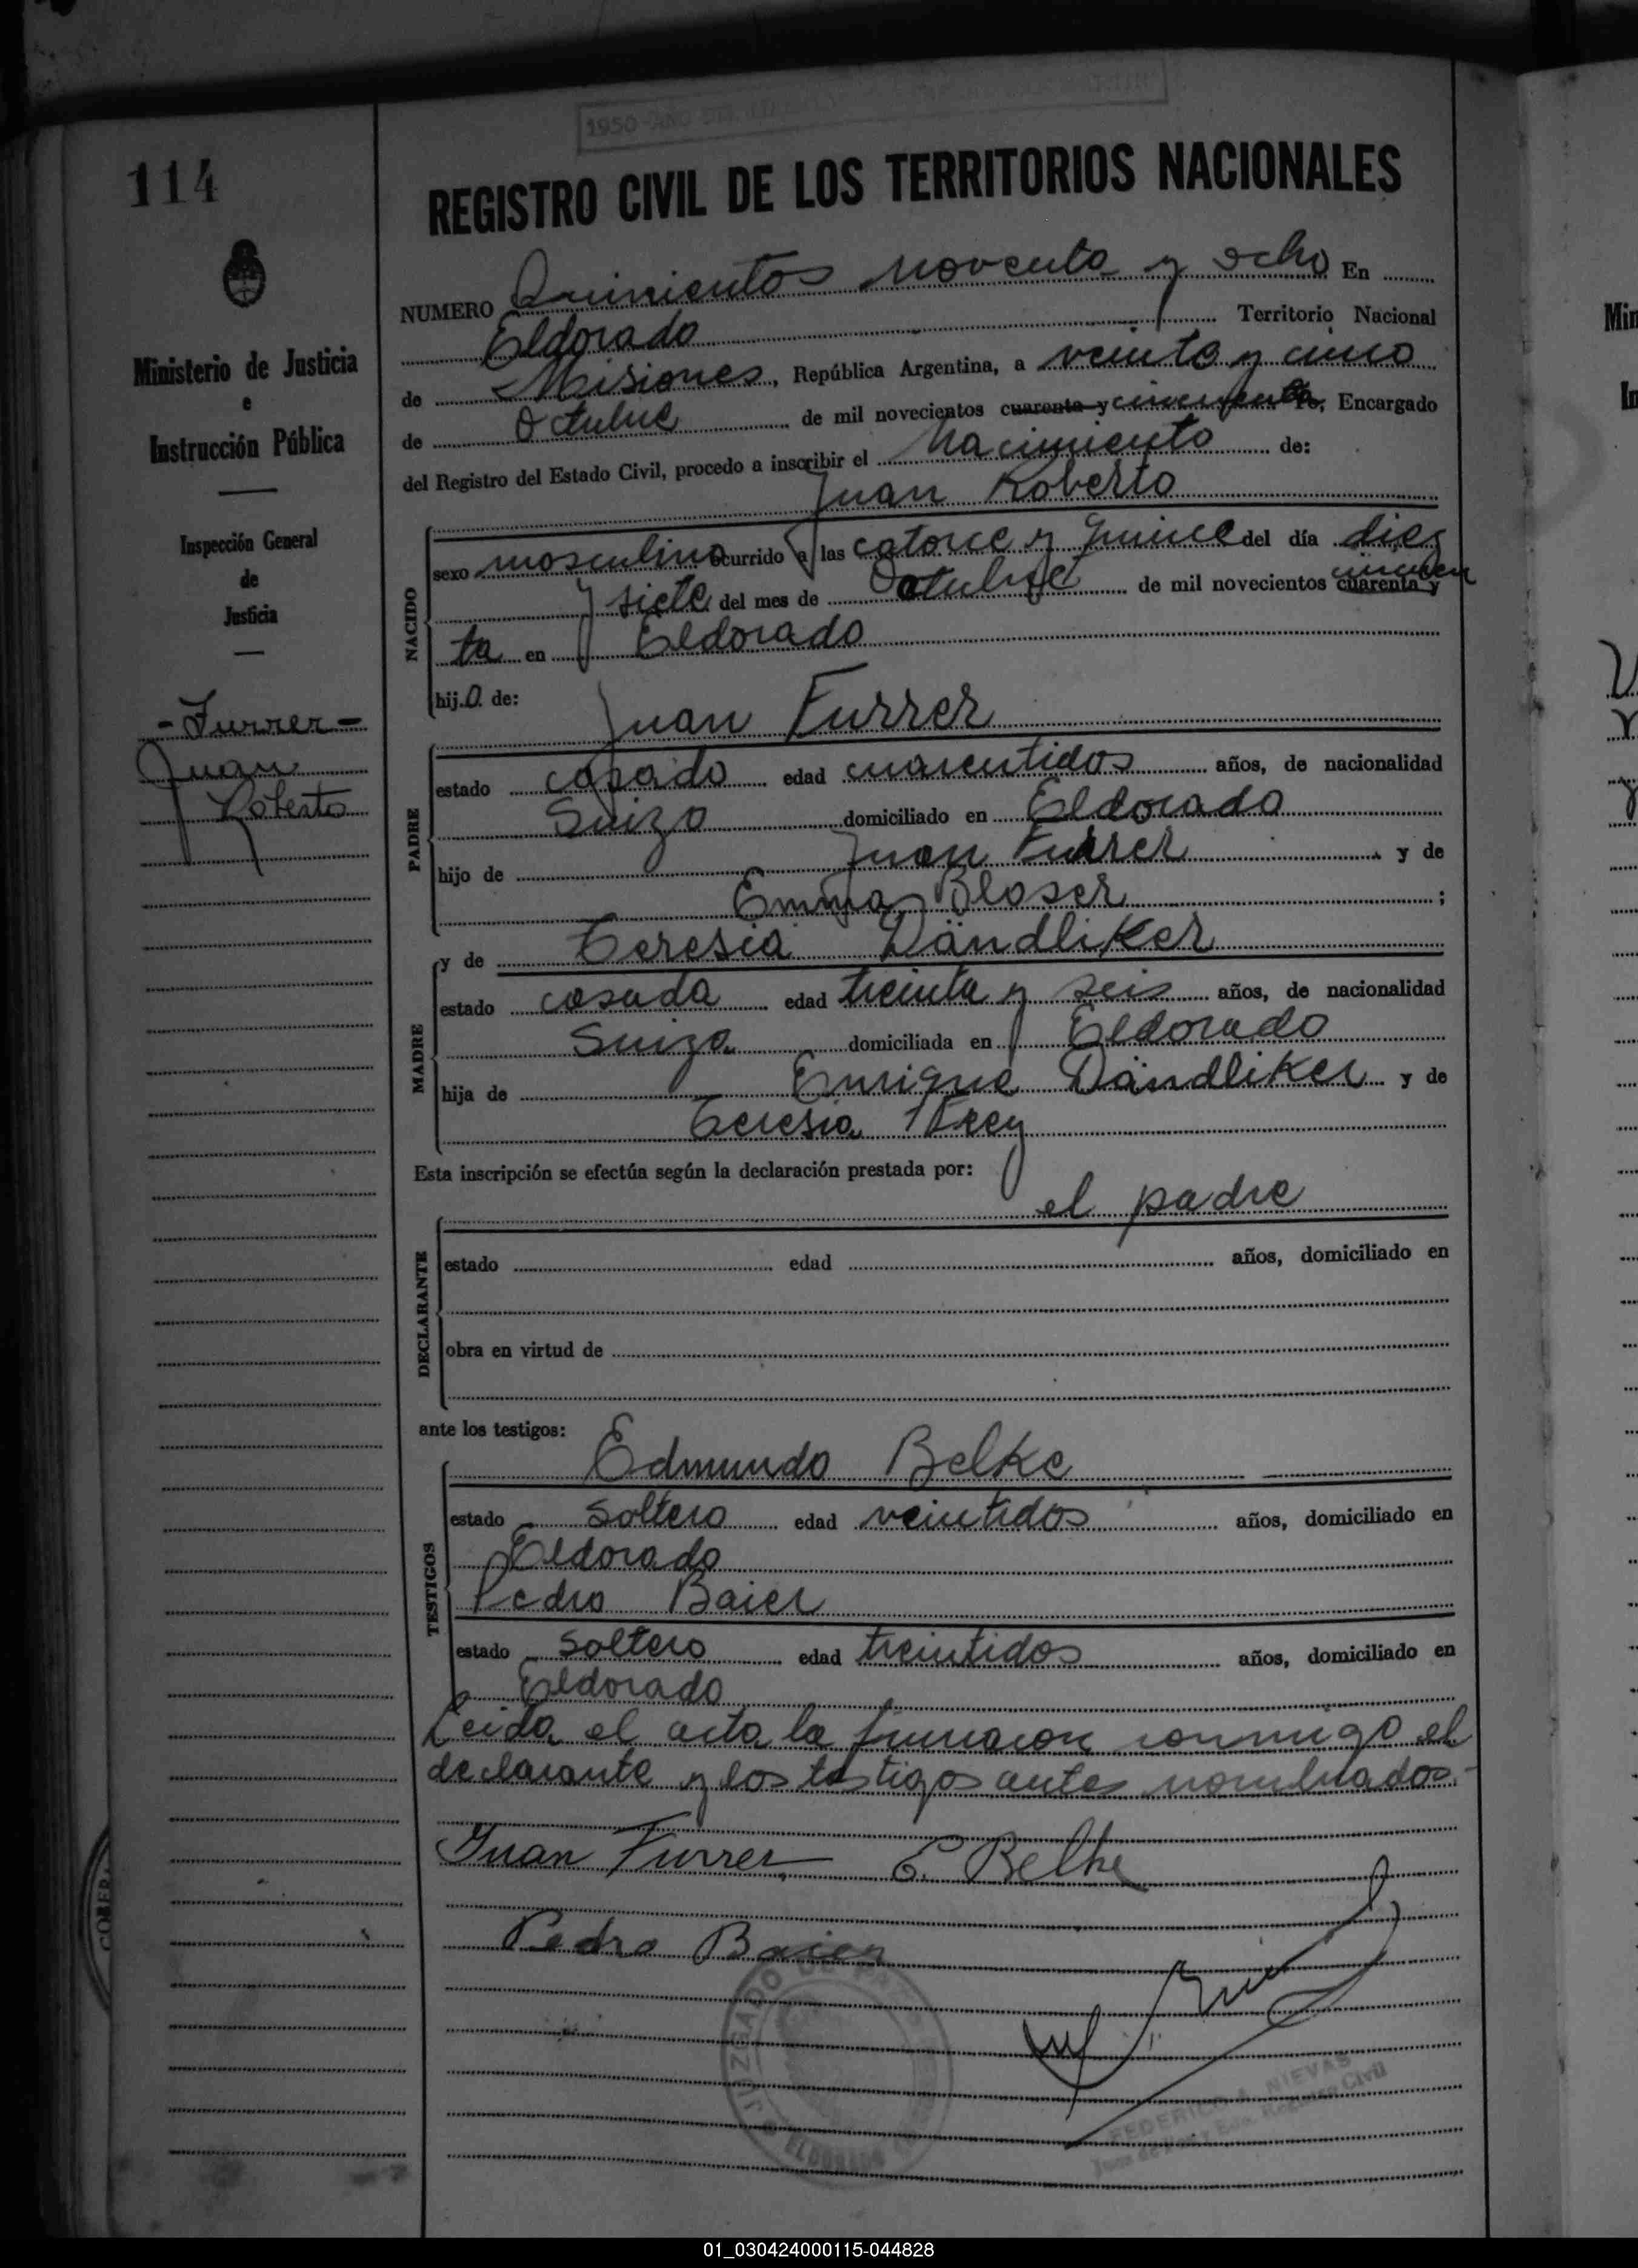 1950 - AÑO DEL
114
REGISTRO CIVIL DE LOS TERRITORIOS NACIONALES
NUMERO Quinientos noventa y ocho En
Eldorado Territorio Nacional
de Misiones, República Argentina, a veinte y cinco
de Octubre de mil novecientos cuarenta y cincuenta Yo, Encargado
del Registro del Estado Civil, procedo a inscribir el Nacimiento de:
Juan Roberto
Ministerio de Justicia
e
Instrucción Pública
Inspección General
de
Justicia
- Furrer -
Juan
Roberto
NACIDO
sexo masculino ocurrido a las catorce y quince del día diez
y siete del mes de Octubre de mil novecientos cuarenta y cincuen
ta en Eldorado
hijo de:
Juan Furrer
PADRE
estado casado edad cuarentidos años, de nacionalidad
Suizo domiciliado en Eldorado
hijo de Juan Furrer y de
Emma Bloser ;
y de Teresia Dändliker
MADRE
estado casada edad treinta y seis años, de nacionalidad
Suiza domiciliada en Eldorado
hija de Enrique Dändliker y de
Teresia Frey
Esta inscripción se efectúa según la declaración prestada por:
el padre
DECLARANTE
estado edad años, domiciliado en
obra en virtud de
ante los testigos:
Edmundo Belke
TESTIGOS
estado soltero edad veintidos años, domiciliado en
Eldorado
Pedro Baier
estado soltero edad treintidos años, domiciliado en
Eldorado
Leida el acta la firmaron conmigo el
declarante y los testigos antes nombrados.-
Juan Furrer E. Belke
Pedro Baier
JUZGADO DE PAZ
ELDORADO
FEDERICO A. NIEVAS
Juez de Paz y Enc. Registro Civil
01_030424000115-044828